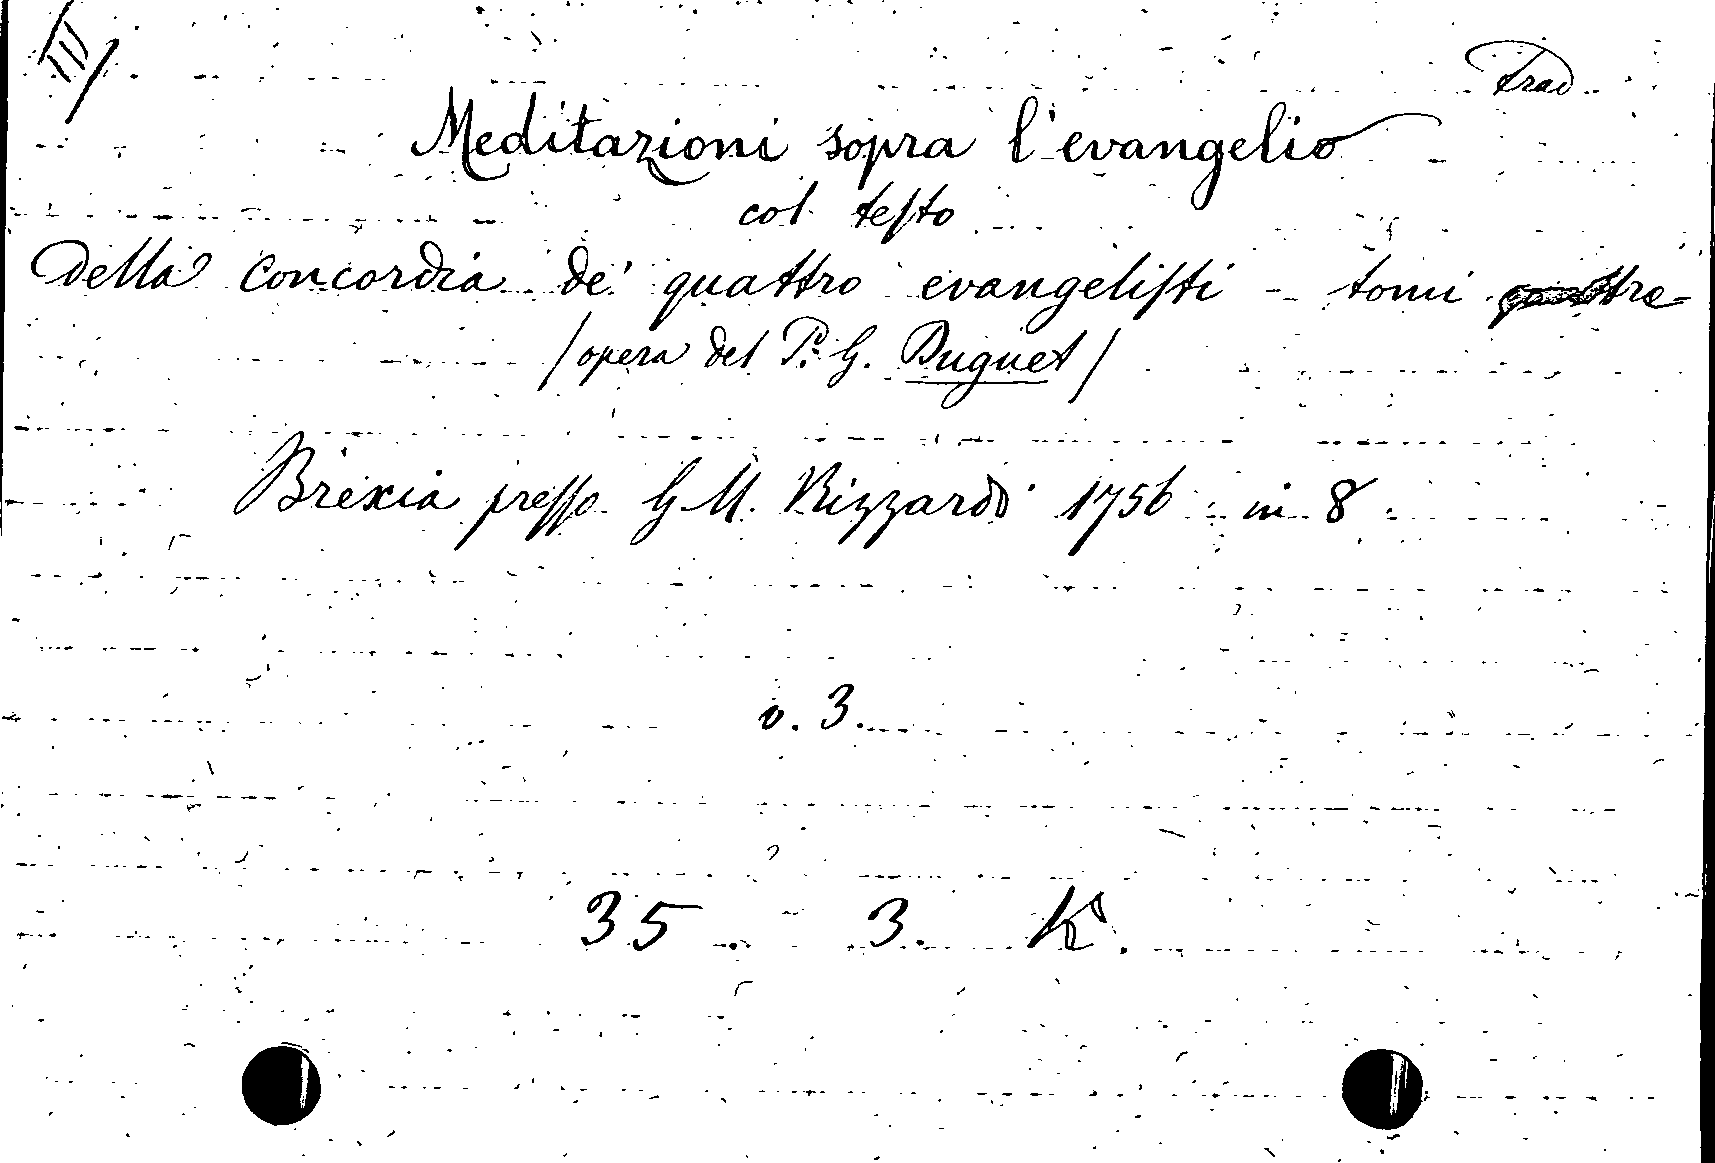 III/
Trad
Meditazioni sopra l'evangelio
col teſto
Della concordia de' quattro evangeliſti - tomi tre-
/opera del P. G. Duguet/
Brexia preſſo G. M. Rizzardi 1756 in 8
v. 3.
35 3. K.